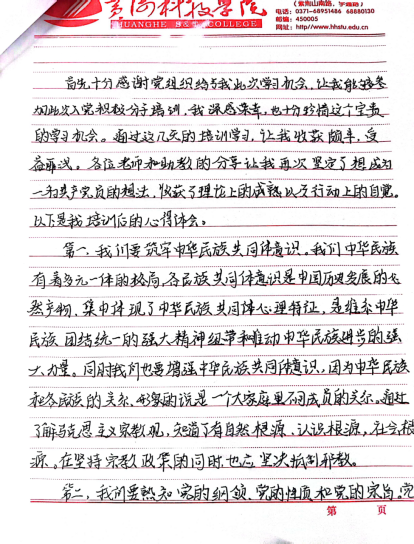 黄河科技学院
HUANGHE S&T COLLEGE
电话：0371-68951486 68880130
邮编：450005
网址：http//www.hhstu.edu.cn
首先十分感谢党组织给与我此次学习机会，让我能够参
加此次入党积极分子培训，我深感荣幸，也十分珍惜这个宝贵
的学习机会。通过这几天的培训学习，让我收获颇丰，受
益匪浅。各位老师和助教的分享让我再次坚定了想成为
一名共产党员的想法，收获了理论上的成熟以及行动上的自觉。
以下是我培训后的心得体会。
第一，我们要筑牢中华民族共同体意识。我们中华民族
有着多元一体的格局，各民族共同体意识是中国历史发展的必
然产物，集中体现了中华民族共同体心理特征，是维系中华
民族团结统一的强大精神纽带和推动中华民族进步的强
大力量。同时我们也要增强中华民族共同体意识，因为中华民族
和各民族的关系，形象的说是一个大家庭里不同成员的关系。通过
了解马克思主义宗教观，知道了有自然根源，认识根源，社会根
源。在坚持宗教政策的同时，也应坚决抵制邪教。
第二，我们要熟知党的纲领，党的性质和党的宗旨，党
第 页